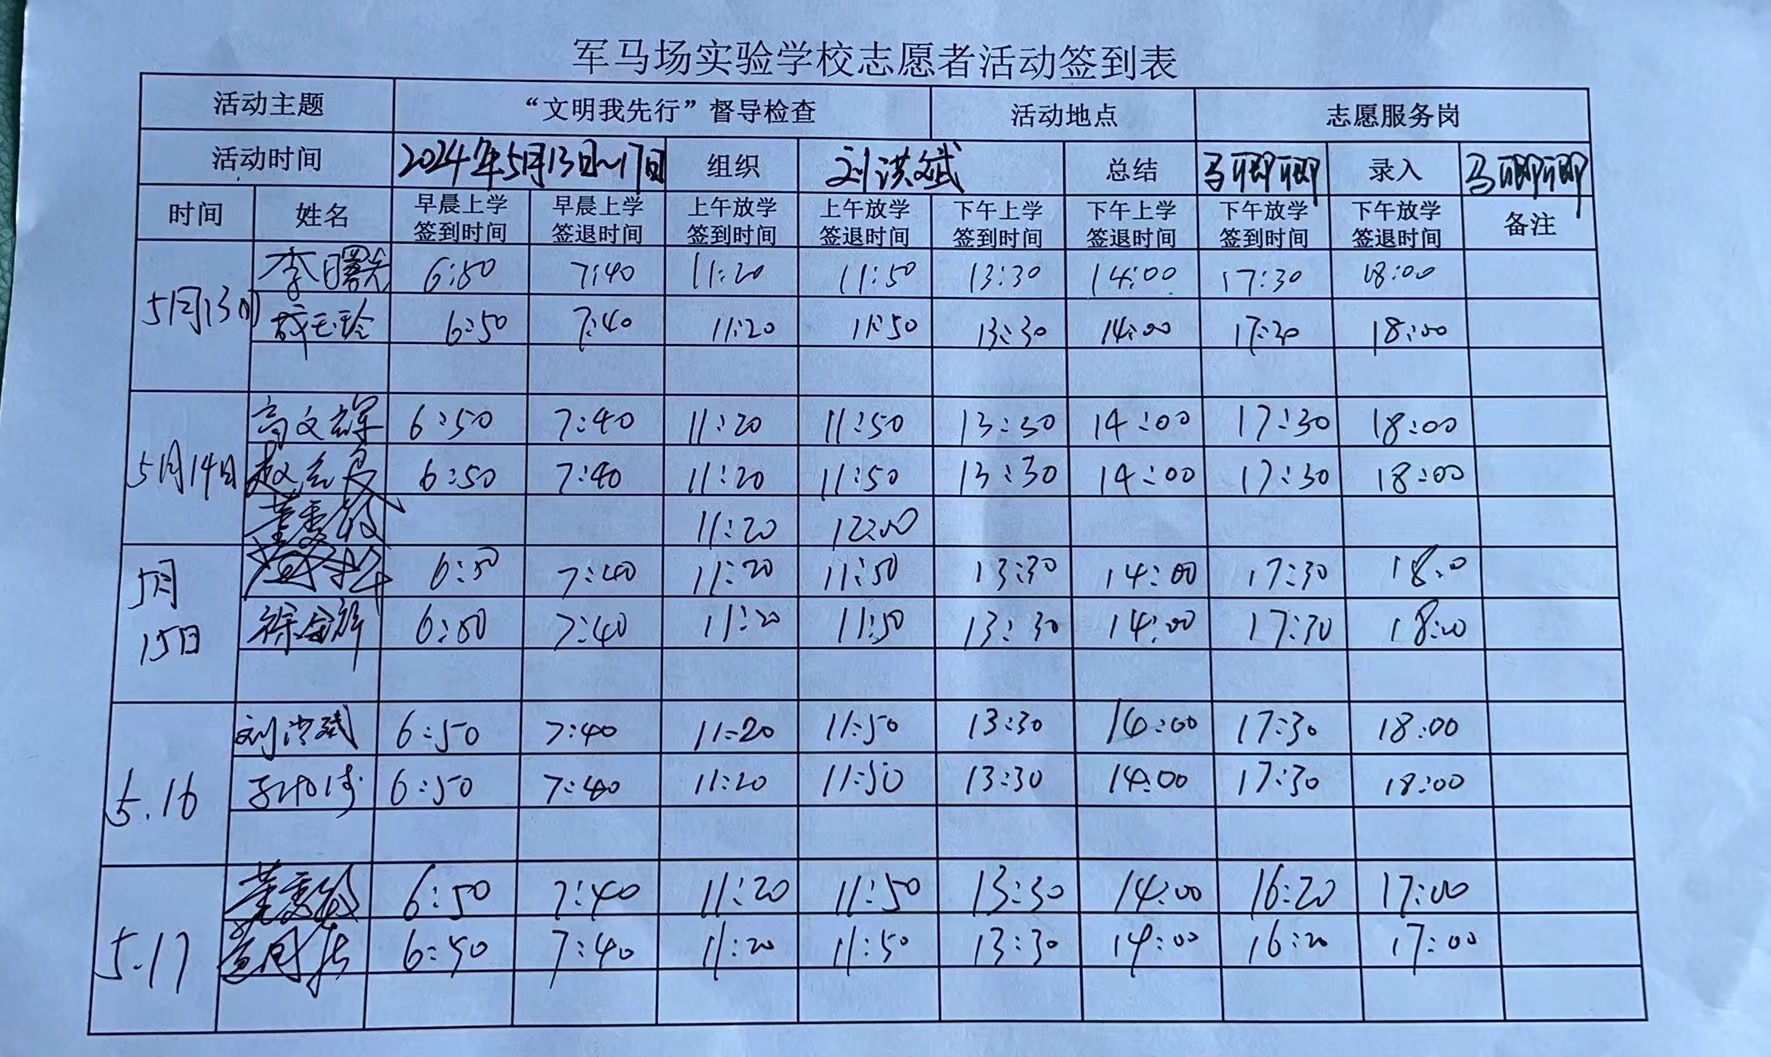 军马场实验学校志愿者活动签到表
活动主题 “文明我先行”督导检查 活动地点 志愿服务岗
活动时间 2024年5月13日~17日 组织 刘洪斌 总结 马 录入 马
时间 姓名 早晨上学签到时间 早晨上学签退时间 上午放学签到时间 上午放学签退时间 下午上学签到时间 下午上学签退时间 下午放学签到时间 下午放学签退时间 备注
5月13日 李曙光 6:50 7:40 11:20 11:50 13:30 14:00 17:30 18:00
6:50 7:40 11:20 11:50 13:30 14:00 17:30 18:00
5月14日 高文辉 6:50 7:40 11:20 11:50 13:30 14:00 17:30 18:00
赵 6:50 7:40 11:20 11:50 13:30 14:00 17:30 18:00
董 11:20 12:00
5月15日 6:50 7:40 11:20 11:50 13:30 14:00 17:30 18:0
徐金辉 6:50 7:40 11:20 11:50 13:30 14:00 17:30 18:00
5.16 刘洪斌 6:50 7:40 11:20 11:50 13:30 14:00 17:30 18:00
6:50 7:40 11:20 11:50 13:30 14:00 17:30 18:00
5.17 董 6:50 7:40 11:20 11:50 13:30 14:00 16:20 17:00
6:50 7:40 11:20 11:50 13:30 14:00 16:20 17:00